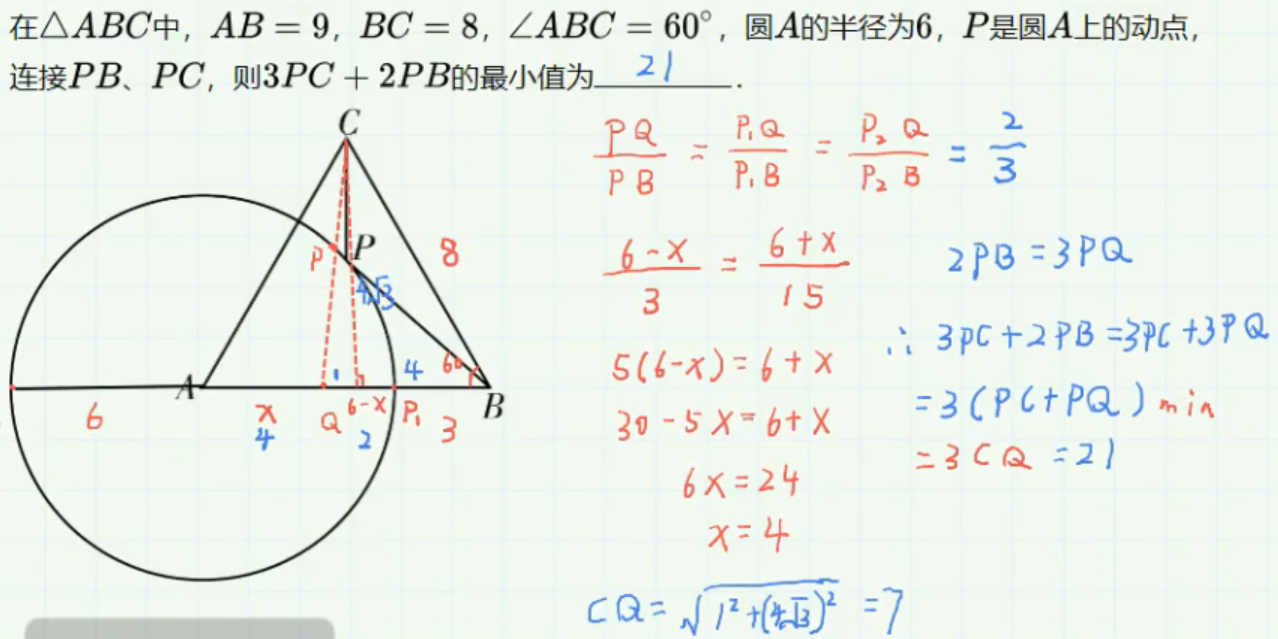 在△ABC中，AB = 9，BC = 8，∠ABC = 60°，圆A的半径为6，P是圆A上的动点，
连接PB、PC，则3PC + 2PB的最小值为 21 .
C
P
P
8
4√3
A
1
4
60
B
6
x
Q
6-x
P₁
3
4
2
PQ/PB = P₁Q/P₁B = P₂Q/P₂B = 2/3
(6-x)/3 = (6+x)/15
5(6-x)=6+x
30-5x=6+x
6x=24
x=4
CQ=√(1²+(4√3)²) =7
2PB=3PQ
∴ 3PC+2PB=3PC+3PQ
=3(PC+PQ)min
=3CQ =21